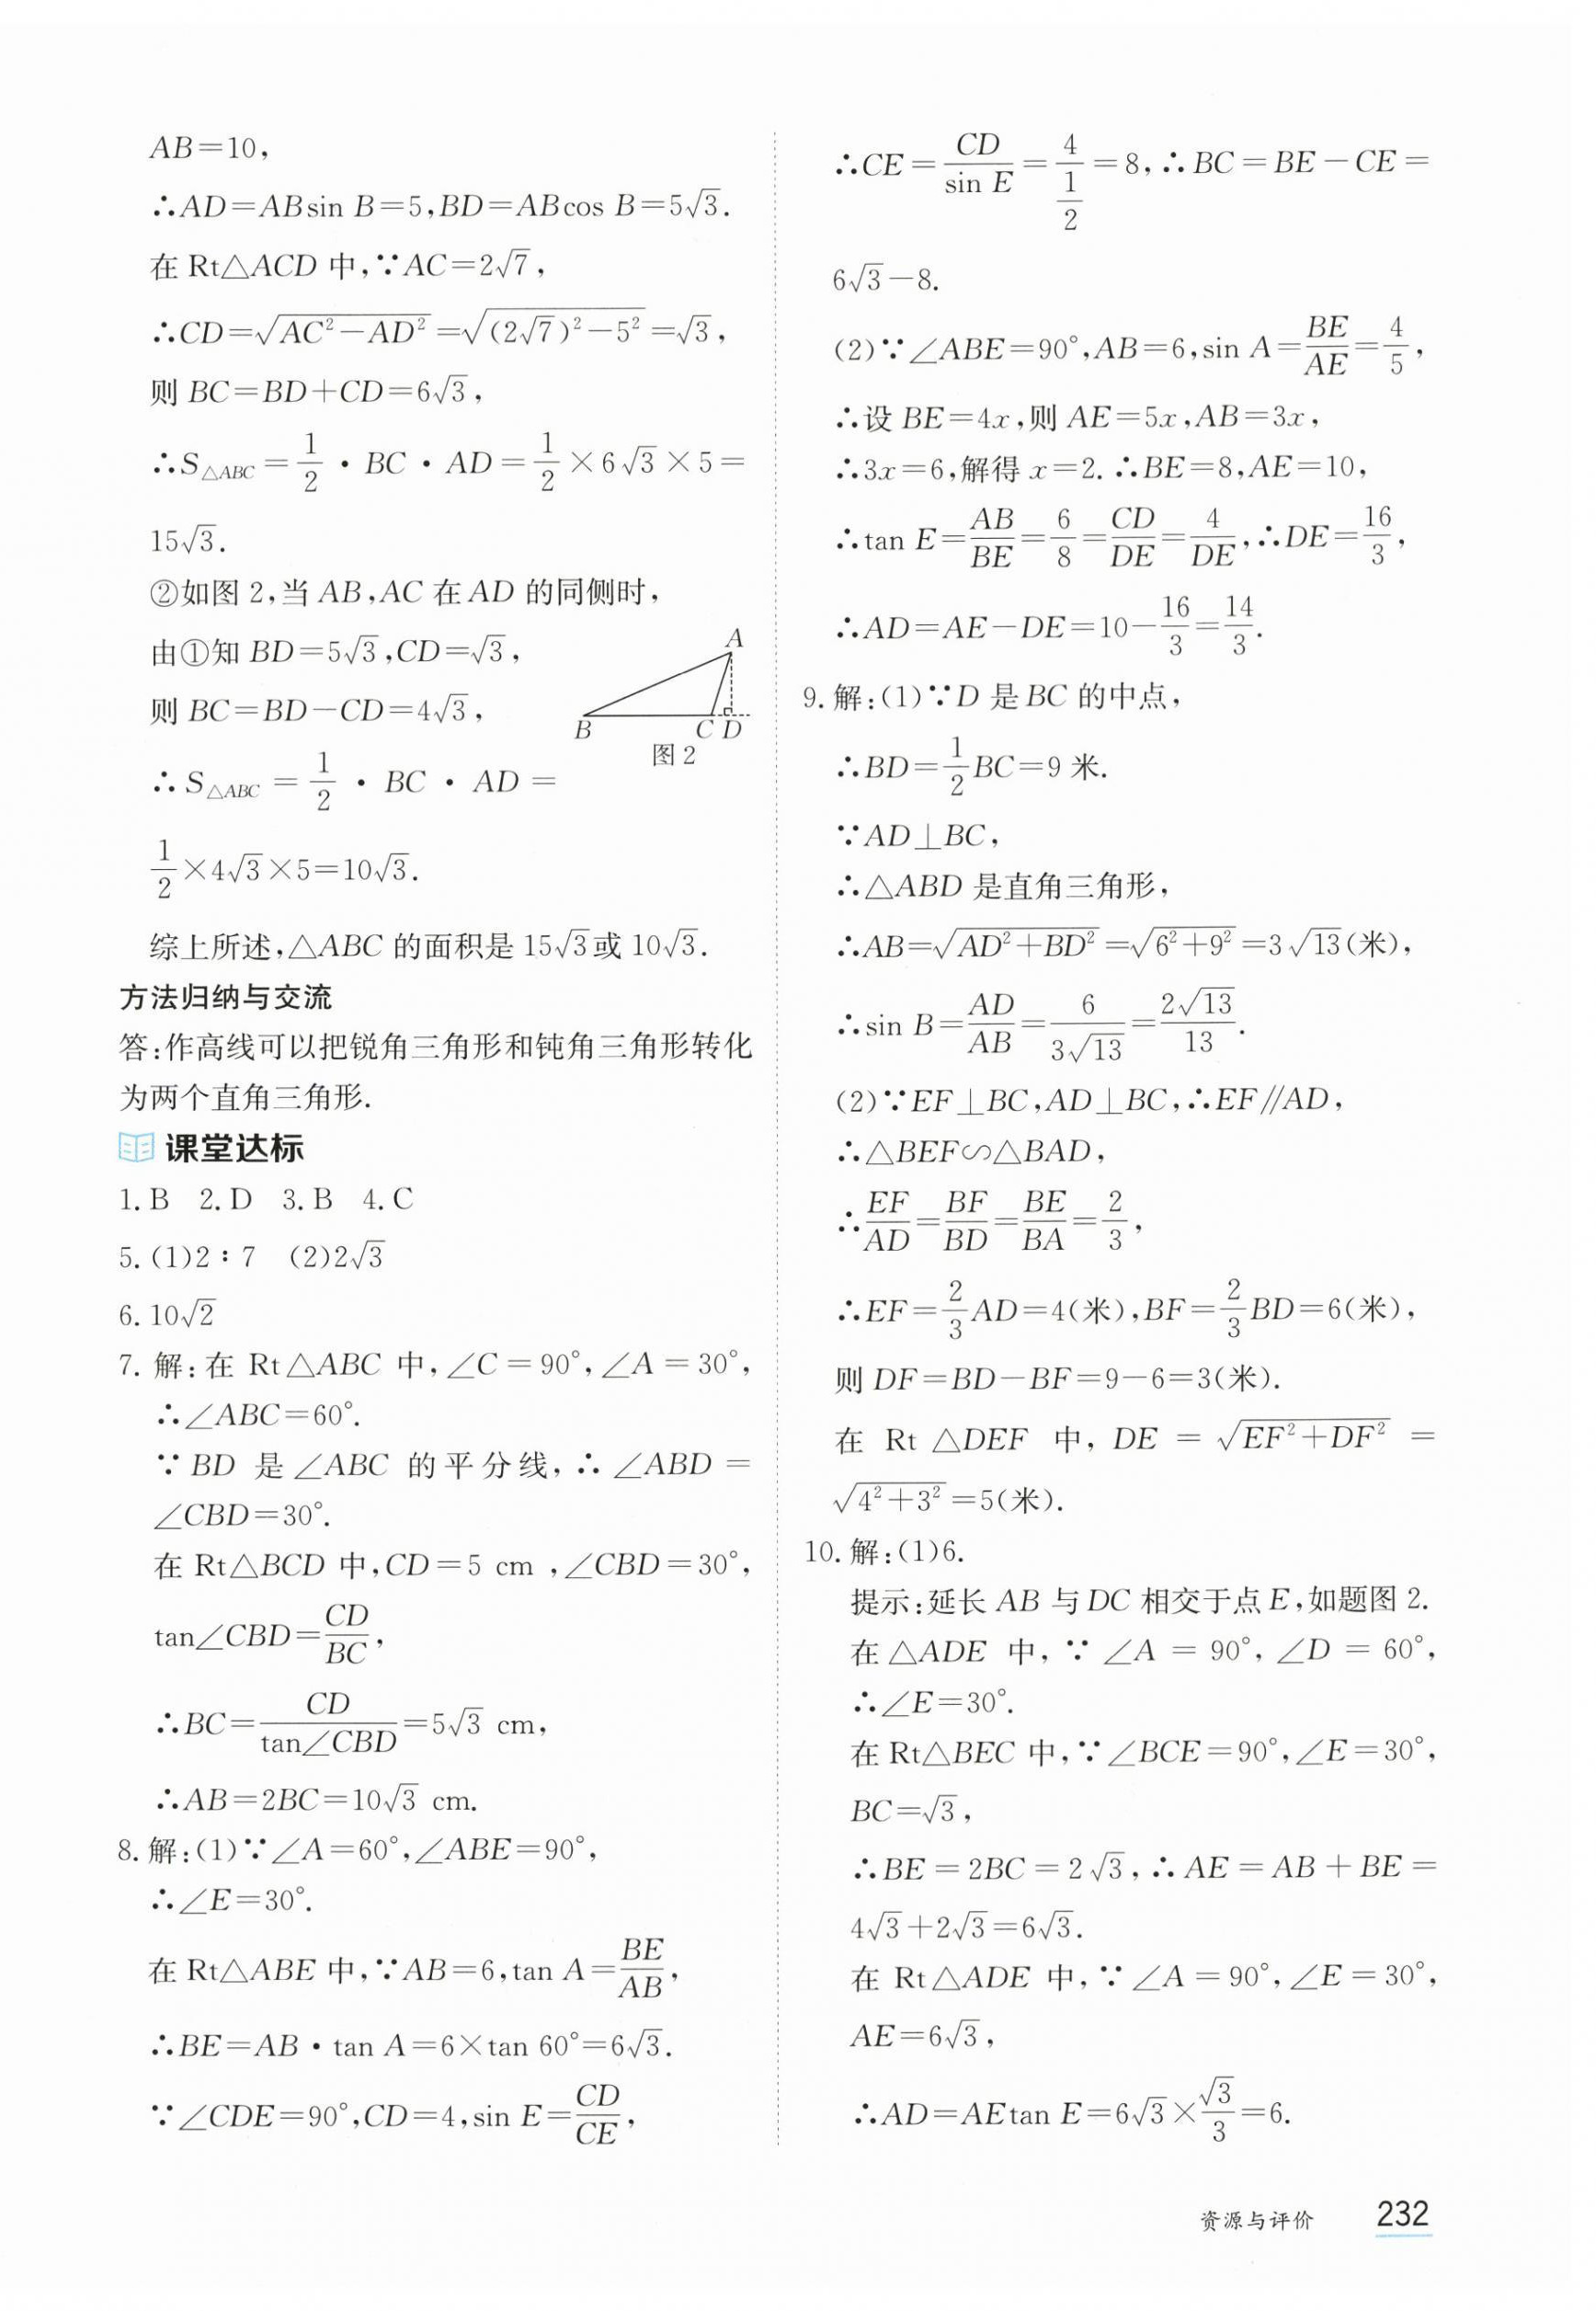 AB=10,
∴AD=ABsin B=5,BD=ABcos B=5√3.
在 Rt△ACD 中,∵AC=2√7,
∴CD=√(AC²-AD²)=√((2√7)²-5²)=√3,
则 BC=BD+CD=6√3,
∴S△ABC=1/2·BC·AD=1/2×6√3×5=
15√3.
②如图 2,当 AB,AC 在 AD 的同侧时,
由①知 BD=5√3,CD=√3,
则 BC=BD-CD=4√3,
∴S△ABC=1/2·BC·AD=
1/2×4√3×5=10√3.
A
B
C D
图 2
综上所述,△ABC 的面积是 15√3或 10√3.
方法归纳与交流
答:作高线可以把锐角三角形和钝角三角形转化
为两个直角三角形.
课堂达标
1.B 2.D 3.B 4.C
5.(1)2∶7 (2)2√3
6.10√2
7. 解:在 Rt△ABC 中,∠C=90°,∠A=30°,
∴∠ABC=60°.
∵BD 是∠ABC 的平分线,∴∠ABD=
∠CBD=30°.
在 Rt△BCD 中,CD=5 cm ,∠CBD=30°,
tan∠CBD=CD/BC,
∴BC=CD/tan∠CBD=5√3 cm,
∴AB=2BC=10√3 cm.
8.解:(1)∵∠A=60°,∠ABE=90°,
∴∠E=30°.
在 Rt△ABE 中,∵AB=6,tan A=BE/AB,
∴BE=AB·tan A=6×tan 60°=6√3.
∵∠CDE=90°,CD=4,sin E=CD/CE,
∴CE=CD/sin E=4/(1/2)=8,∴BC=BE-CE=
6√3-8.
(2)∵∠ABE=90°,AB=6,sin A=BE/AE=4/5,
∴设 BE=4x,则 AE=5x,AB=3x,
∴3x=6,解得 x=2.∴BE=8,AE=10,
∴tan E=AB/BE=6/8=CD/DE=4/DE,∴DE=16/3,
∴AD=AE-DE=10-16/3=14/3.
9.解:(1)∵D 是 BC 的中点,
∴BD=1/2BC=9 米.
∵AD⊥BC,
∴△ABD 是直角三角形,
∴AB=√(AD²+BD²)=√(6²+9²)=3√13(米),
∴sin B=AD/AB=6/(3√13)=2√13/13.
(2)∵EF⊥BC,AD⊥BC,∴EF∥AD,
∴△BEF∽△BAD,
∴EF/AD=BF/BD=BE/BA=2/3,
∴EF=2/3AD=4(米),BF=2/3BD=6(米),
则 DF=BD-BF=9-6=3(米).
在 Rt△DEF 中,DE=√(EF²+DF²)=
√(4²+3²)=5(米).
10.解:(1)6.
提示:延长 AB 与 DC 相交于点 E,如题图 2.
在△ADE 中,∵∠A=90°,∠D=60°,
∴∠E=30°.
在 Rt△BEC 中,∵∠BCE=90°,∠E=30°,
BC=√3,
∴BE=2BC=2√3,∴AE=AB+BE=
4√3+2√3=6√3.
在 Rt△ADE 中,∵∠A=90°,∠E=30°,
AE=6√3,
∴AD=AEtan E=6√3×√3/3=6.
资源与评价 232